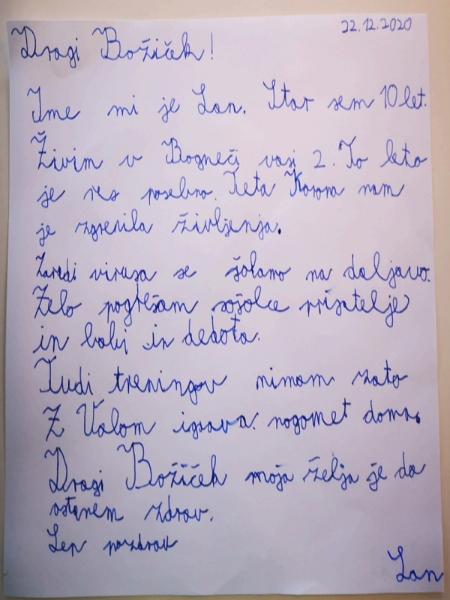 22.12.2020
Dragi Božiček!
Ime mi je Lan. Star sem 10 let.
Živim v Bogneči vasi 2. To leto
je res posebno. Teta Korona nam
je zgrenila življenja.
Zaradi virusa se šolamo na daljavo.
Zelo pogrešam sošolce prijatelje
in babi in dedota.
Tudi treningov nimam zato
Z Valom igrava nogomet doma.
Dragi Božiček moja želja je da
ostanem zdrav.
Lep pozdrav
Lan